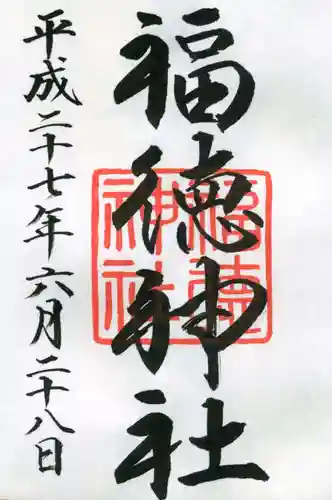 福徳神社
福徳
神社
平成二十七年六月二十八日